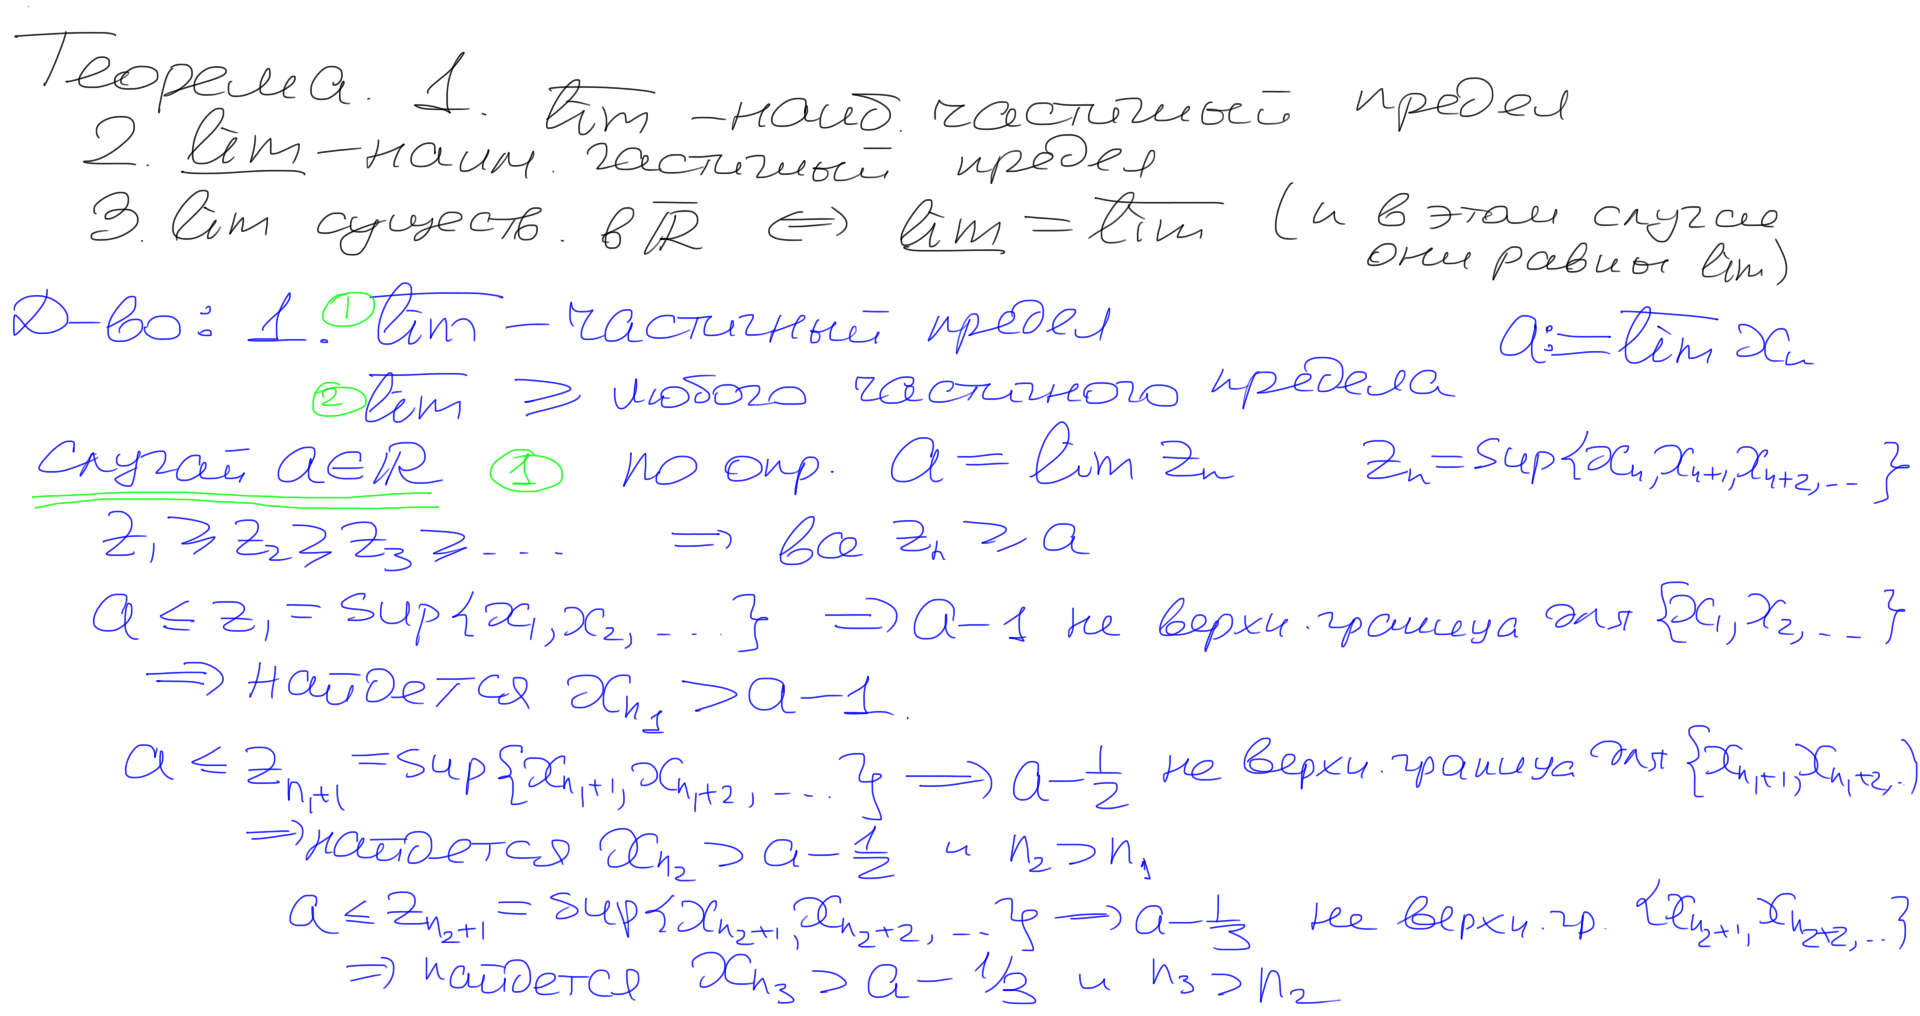 Теорема. 1. \overline{lim} – наиб. частичный предел
2. \underline{lim} – наим. частичный предел
3. lim существ. в \overline{ℝ} ⇔ \underline{lim} = \overline{lim} (и в этом случае
они равны lim)
Д-во: 1. ① \overline{lim} – частичный предел a := \overline{lim} xₙ
② \overline{lim} ⩾ любого частичного предела
Случай a∈ℝ ① по опр. a = lim zₙ zₙ = sup{xₙ, xₙ₊₁, xₙ₊₂, ...}
z₁ ⩾ z₂ ⩾ z₃ ⩾ ... ⇒ все zₙ ⩾ a
a ≤ z₁ = sup{x₁, x₂, ...} ⇒ a – 1 не верхн. граница для {x₁, x₂, ...}
⇒ найдется x_{n₁} > a – 1.
a ≤ z_{n₁+1} = sup{x_{n₁+1}, x_{n₁+2}, ...} ⇒ a – 1/2 не верхн. граница для {x_{n₁+1}, x_{n₁+2}, ..}
⇒ найдется x_{n₂} > a – 1/2 и n₂ > n₁
a ≤ z_{n₂+1} = sup{x_{n₂+1}, x_{n₂+2}, ...} ⇒ a – 1/3 не верхн. гр. {x_{n₂+1}, x_{n₂+2}, ...}
⇒ найдется x_{n₃} > a – 1/3 и n₃ > n₂